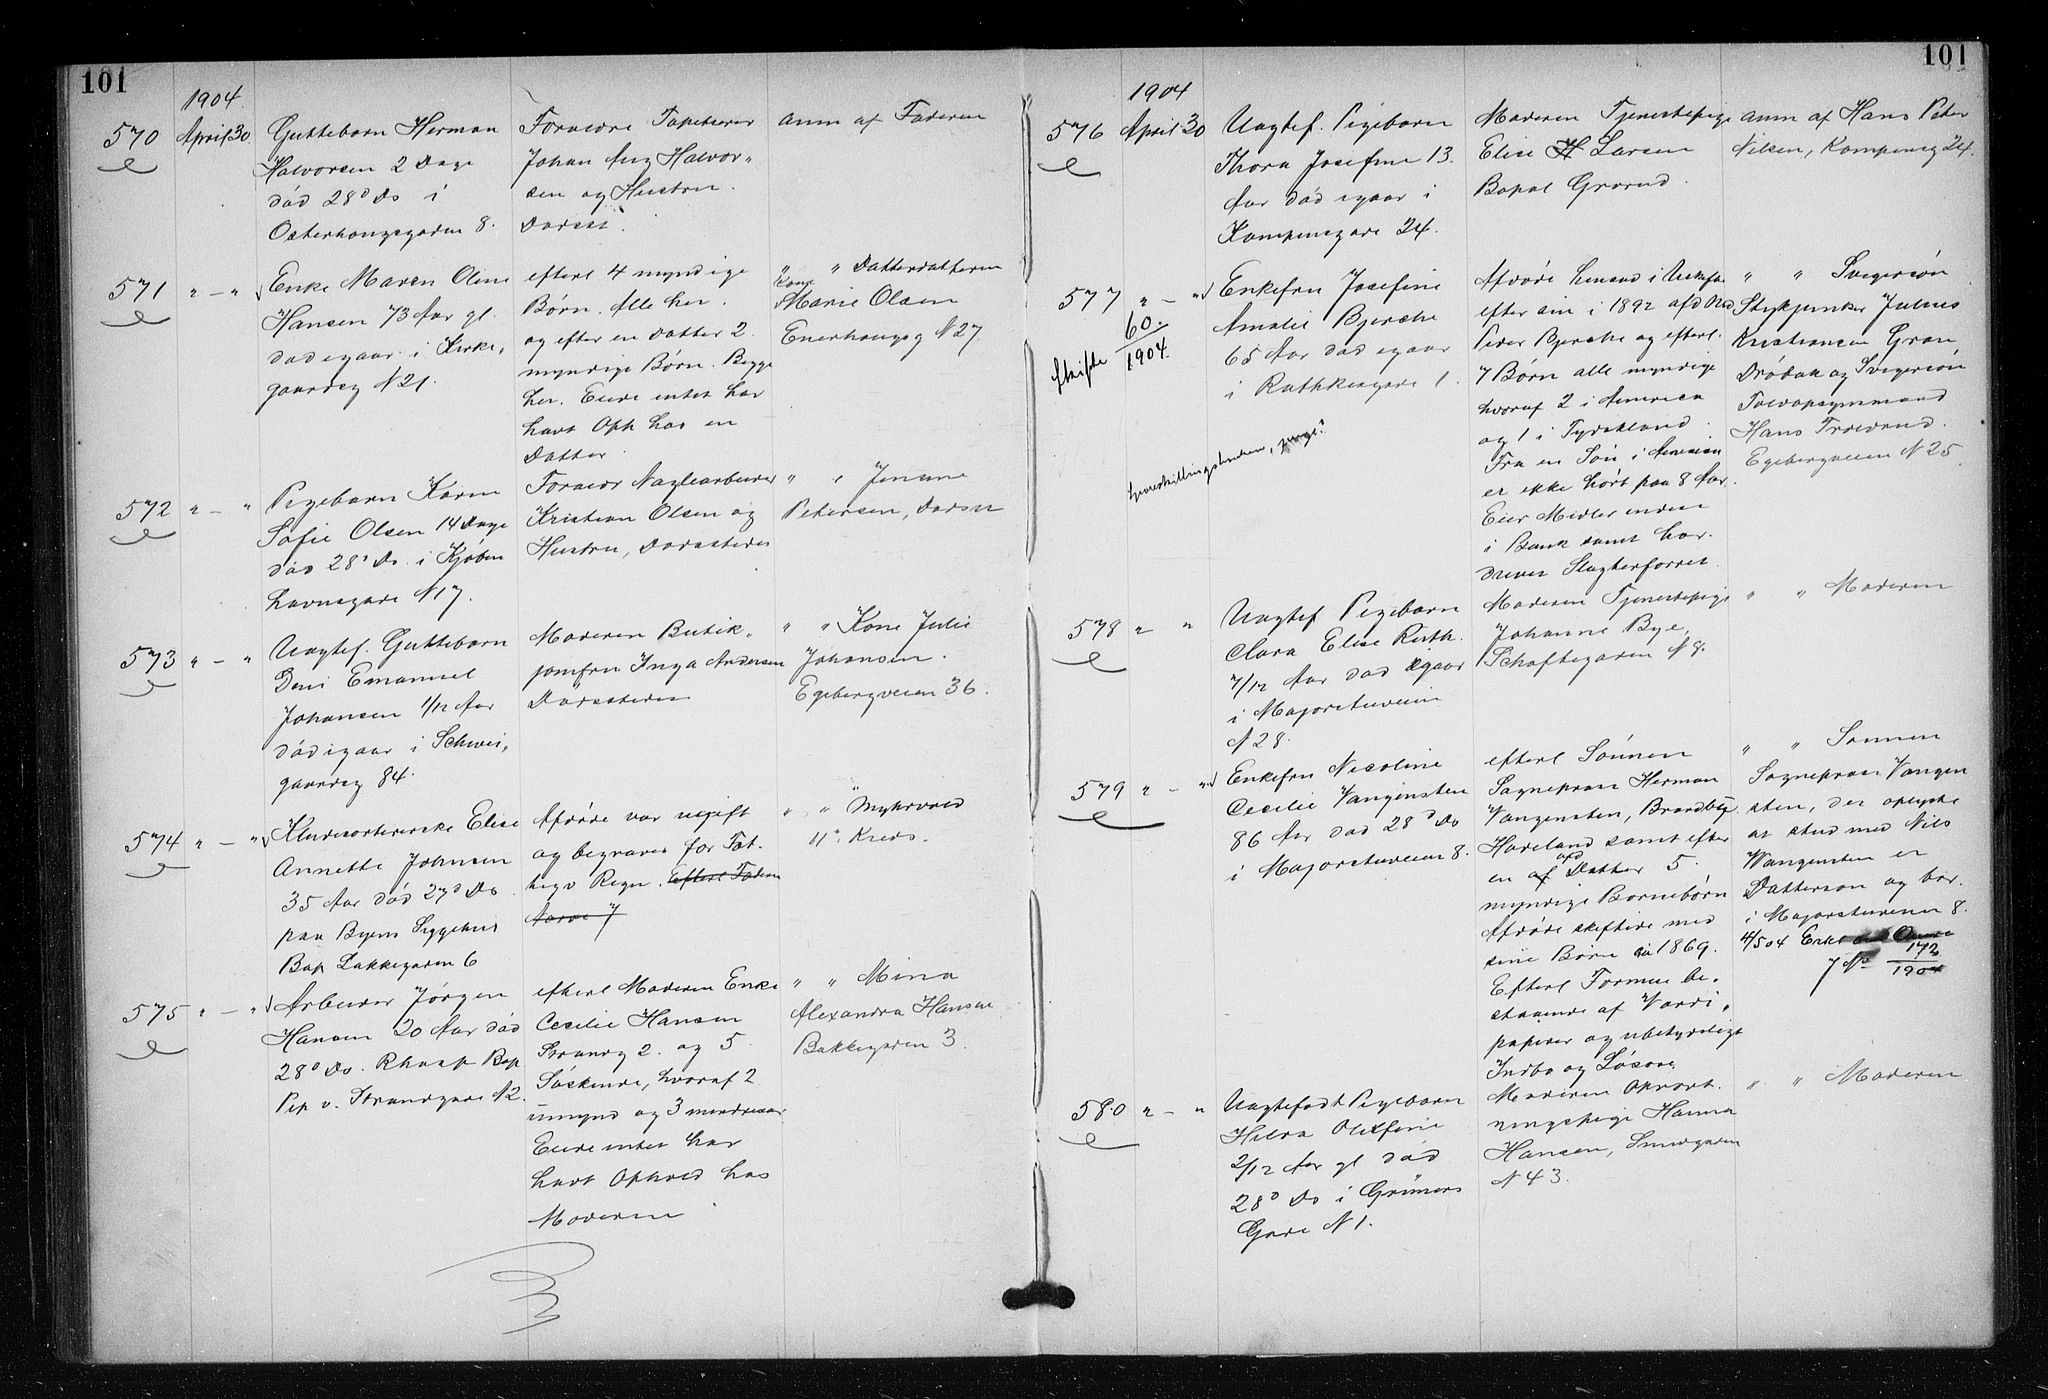 101
1904
570 April 30 Guttebarn Herman
Halvorsen 2 Dage
död 28d Ds i
Österhougsgaden 8.
Foraldre Tapetserer
Johan Aug Halvor„
sen og Hustru.
Darsst.
anm af Faderen
571 „ — „ Enke Maren Oline
Hansen 73 Aar gl.
död igaar i Kirke„
gaardsg N 21.
efterl 4 myndige
Børn. Alle her.
og efter en Datter 2
myndige Børn. Begge
her. Eiede intet har
havt Oph hos en
Datter.
„ „ Datterdatteren
Kone
Marie Olsen
Enerhougsg N 27
572 „ — „ Pigebarn Karen
Sofie Olsen 14 Dage
död 28d Ds. i Kjøben
havnsgade N 17.
Foraldr Naglearbeider
Kristian Olsen og
Hustru, Darsstedes
„ „ Jensine
Petersen, Darsst
573 „ — „ Uagtef. Guttebarn
Emanuel
Johansen 1/12 Aar
död igaar i Schwei„
gaardsg 84.
Moderen Butik„
jomfru Inga Andersen
Darsstedes
„ „ Kone Julie
Johansen.
Egebergveien 36.
574 „ — „ Kludesortererske Elise
Annette Johnsen
35 Aar död 27d Ds
paa Byens Sygehus
Bop Lakkegaden 6
Afdøde var ugift
og begraves for Fat.
tigv Regn. Efterl Faderen
7
„ „ Myhrvold
11te Kreds.
575 „ — „ Arbeider Jørgen
Hansen 20 Aar död
28d Ds. Rhosp Bop
Pip v. Strandgade N 2.
efterl Moderen Enke
Cecilie Hansen
Strandg 2. og 5
Søskende, hvoraf 2
umynd og 3 mindreaar
Eiede intet har
havt Ophold hos
Moderen
„ „ Mina
Alexandra Hansen
Bakkegaden 3.
101
1904
576 April 30 Uagtef. Pigebarn
Thora Josefine 13
Aar död igaar i
Kampensgade 24.
Moderen Tjenestepige
Elise H Larsen
Bopal Grorud.
anm af Hans Peter
Nilsen, Kampensg 24.
577 „ — „ Enkefru Josefine
Amalie Bjerche
65 Aar död igaar
i Rathkesgade 1.
Skifte 60/1904.
Afdøde hensad i Uskifte
efter sin i 1892 afd Md
Peder Bjerche og efterl.
7 Børn alle myndige
hvoraf 2 i America
og 1 i Tydskland.
Fra en Søn i America
er ikke hørt paa 8 Aar.
Eier Midler indest
i Bank samt har
drevet Slagterforret
„ „ Svigersön
Julius
Kristiansen Gran
Dröbak og Svigersön
Toldopsynsmand
Hans
Egebergveien N 25.
578 „ „ Uagtef Pigebarn
Clara Elise Ruth
7/12 Aar död igaar
i Majorstuveien
N 28.
Moderen Tjenestepige
Johanne Bye,
Schaftegaden N 8.
„ „ Moderen
579 „ — „ Enkefru Nicoline
Cecilie Vangensten
86 Aar död 28d Ds
i Majorstuveien 8.
efterl Sønnen
Sogneprest Herman
Vangensten, Brandbu
Hadeland samt efter
en afd Datter 5
myndige Børnebørn
Afdøde skiftede med
sine Børn i 1869.
Efterl Formue be„
staaende af Værdi„
papirer og ubetydeligt
Indbo og Løsøre
„ „ Sønnen
Sogneprest Vangen
sten, der oplyste
at stud med Nils
Wangensten er
Dattersøn og bor
i Majorstuveien 8.
4/5 04
172/1904
580 „ — „ Uagtefødt Pigebarn
Hilda Olefine
2/12 Aar gl död
28d Ds i Grüners
Gade N 1.
Moderen Opvart.
ningspige Hanna
Hansen, Smedgaden
N 43.
„ „ Moderen